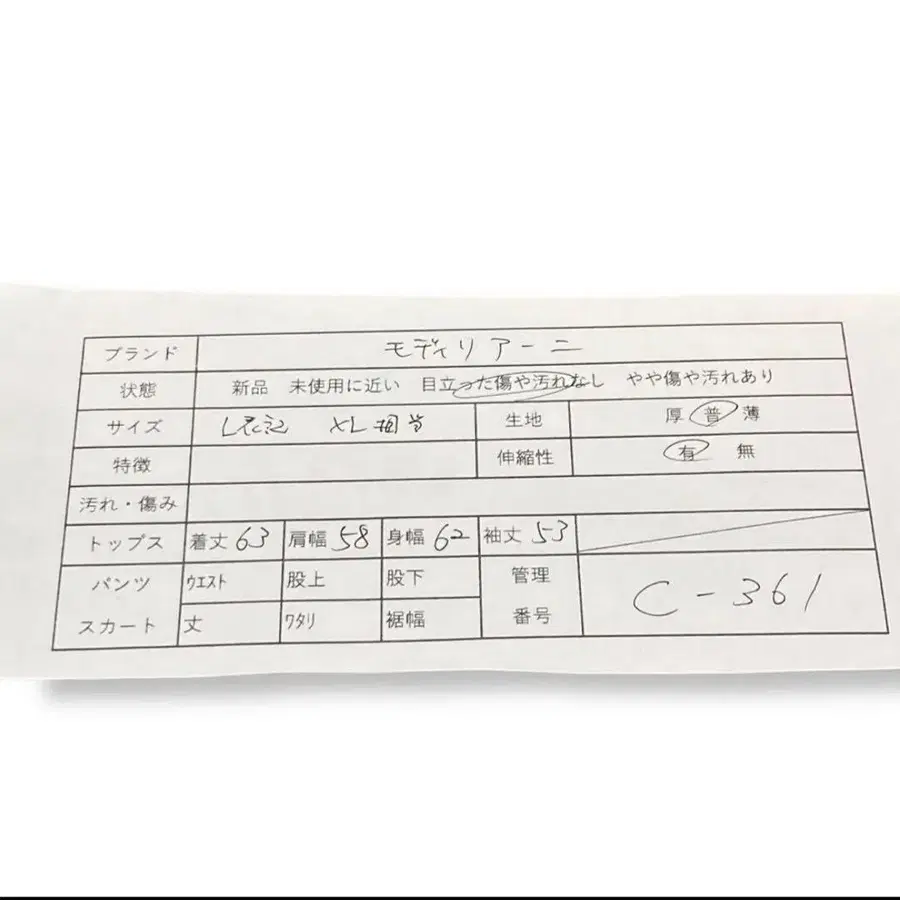 ブランド モディリアーニ
状態 新品 未使用に近い 目立った傷や汚れなし やや傷や汚れあり
サイズ L表記 XL相当 生地 厚 普 薄
特徴 伸縮性 有 無
汚れ・傷み
トップス 着丈 63 肩幅 58 身幅 62 袖丈 53
パンツ ウエスト 股上 股下 管理
スカート 丈 ワタリ 裾幅 番号 C-361